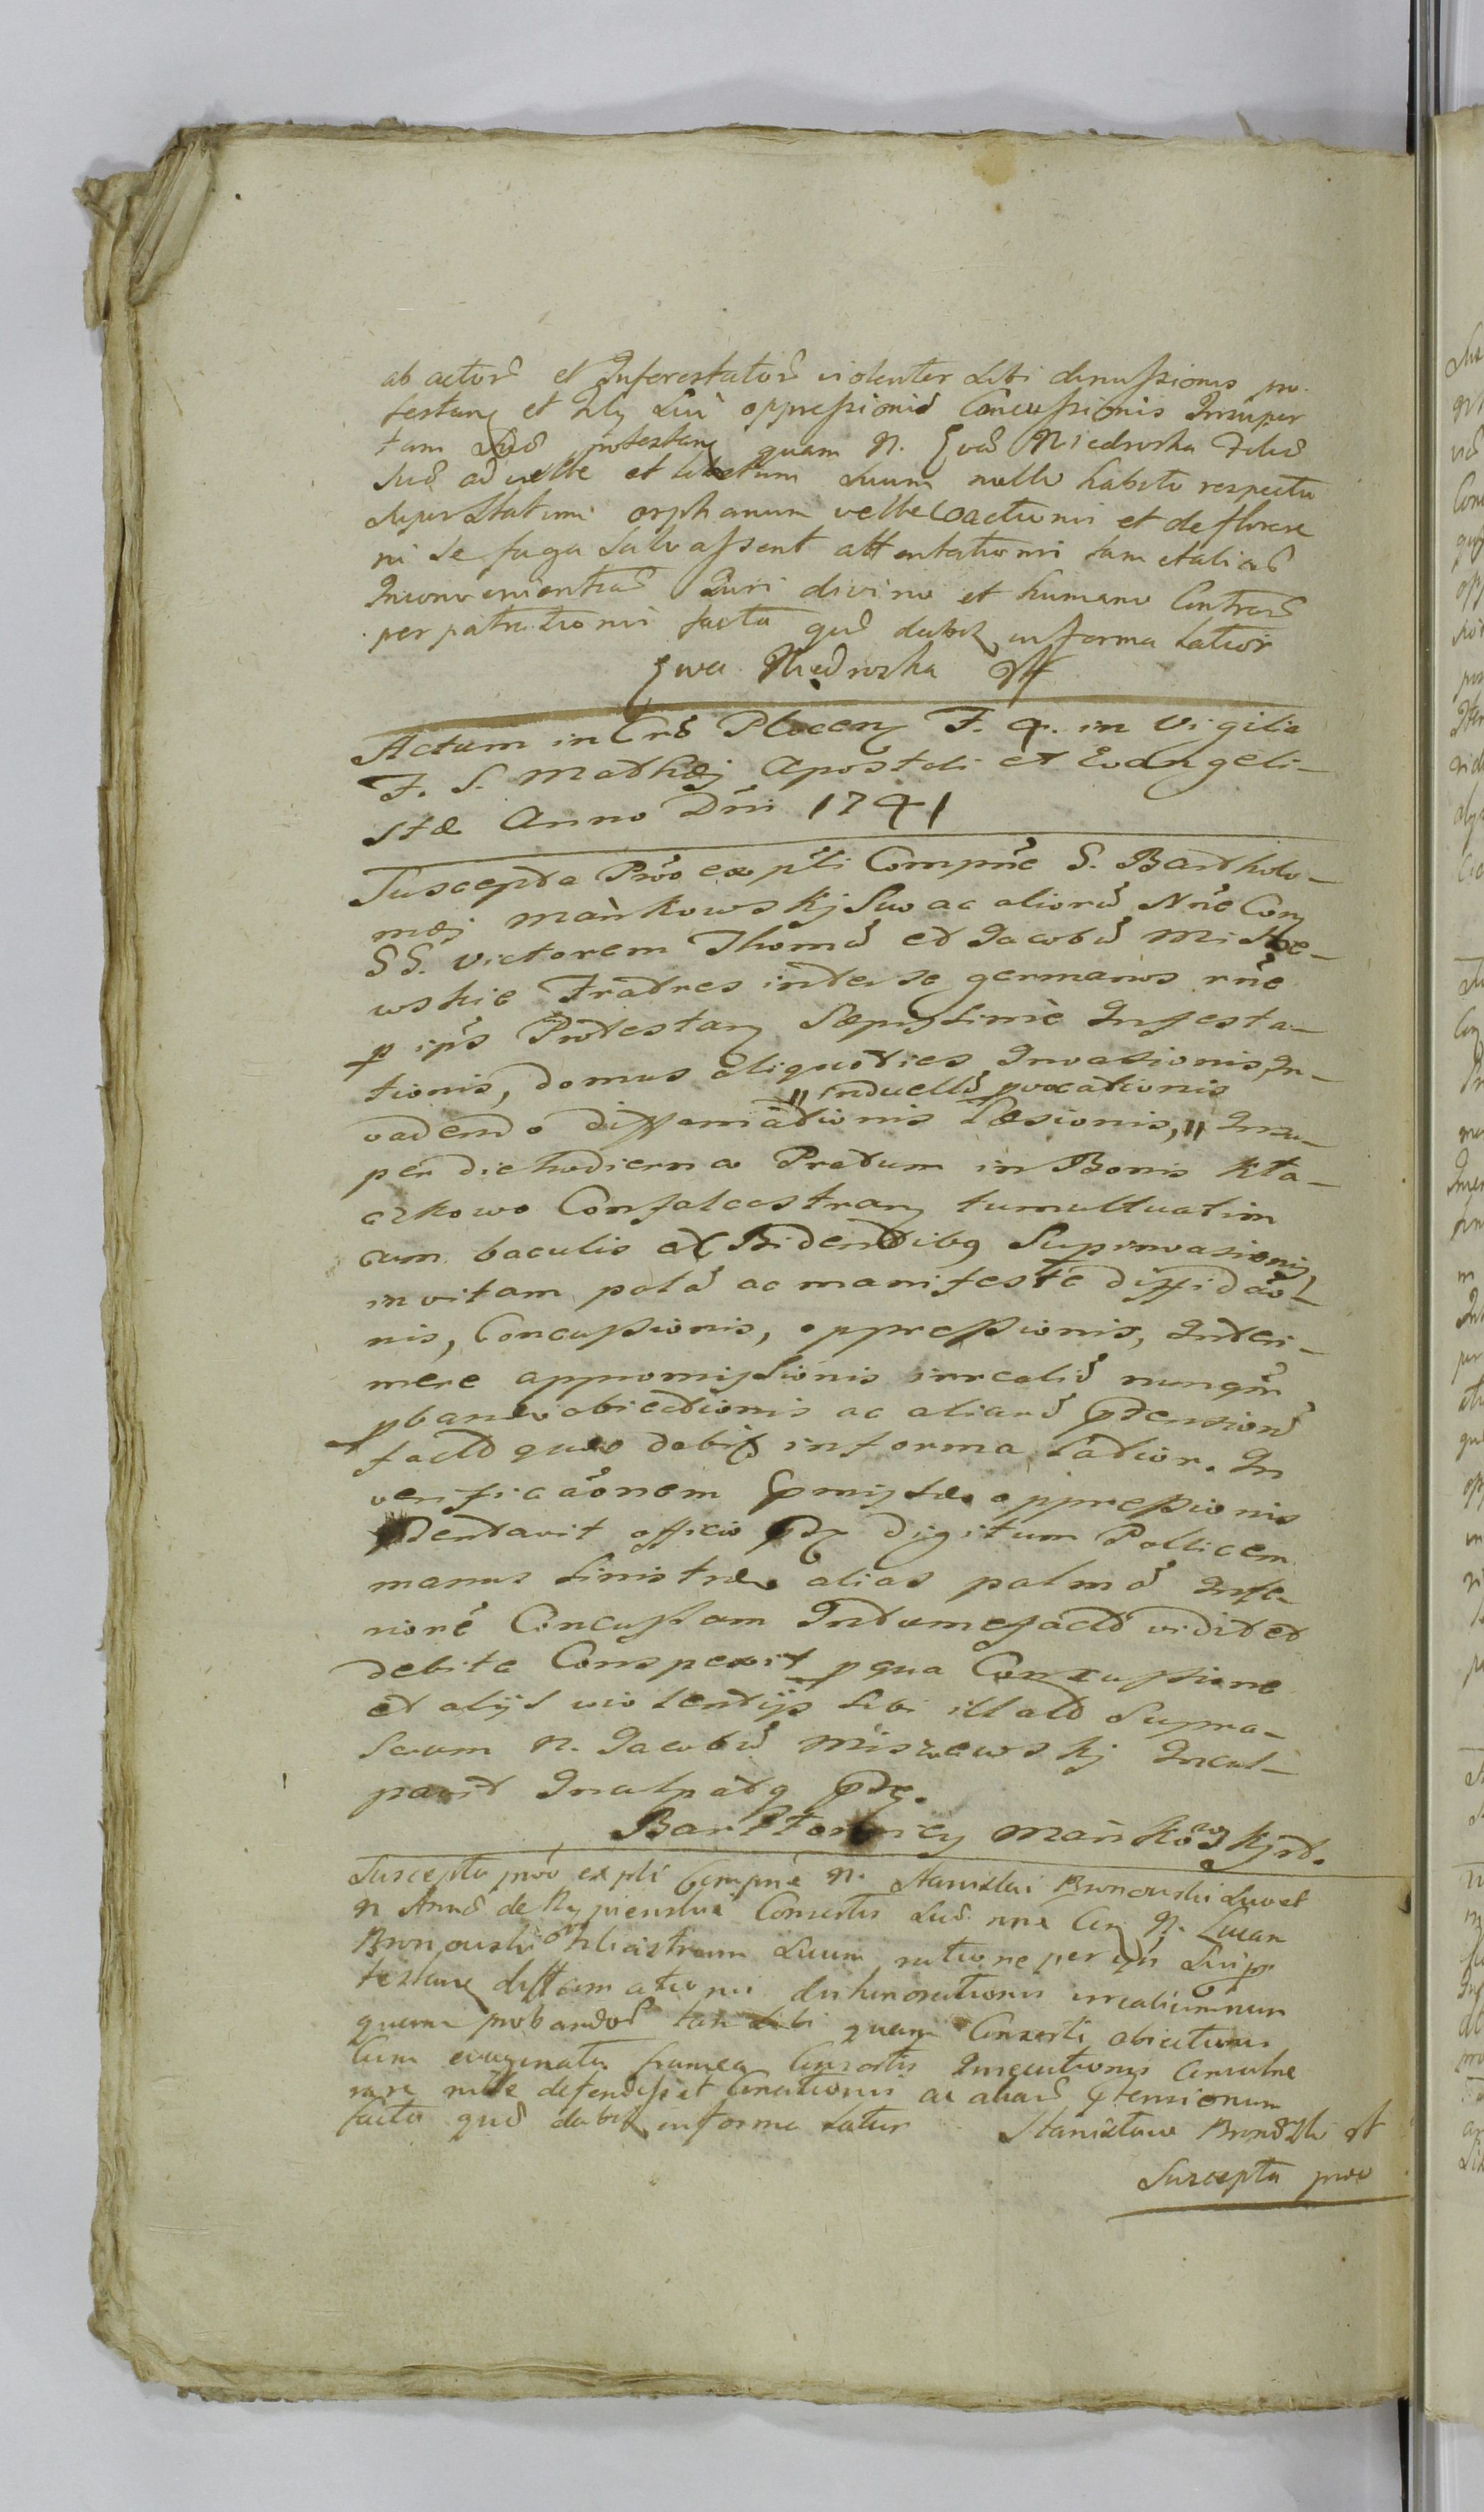 ab actorū et Inferestatorū violenter Sibi dimissionis pro-
testanę et Filij Sui oppressionis Concussionis Insuper
tam Suā protestanę quam N. Evā Niedroska Filiā
Suā ad velle et libitum Suum nullo habito respectu
Super Statum orphanum velle Coactionis et deflorare
ni se fuga Salvassent attentationis tam etaliās
Inconvenientiās Juri divino et humano Contrariās
perpatrationis facta quā debitę in forma latior
Ewa Niedroska Mt
Actum in Crō Plocenę F. 4. in Vigilia
F. S. Mathæj Apostoli et Evangeli-
stæ Anno Dni 1741
Suscepta Prōo ex pti Compne G. Bartholo-
mæj Mańkowskj Suo ac aliorū Nne Conę
GG. Victorem Thomā et Jacobū Misze-
wskie Fratres inter se germanos rne
p ips Protestanę Sæpissimè Infesta-
tionis, domus aliquoties Invasionis, In-
vadendo diffamationis Læsionis, " Insu-
" in duellū pvocationis
per die hodierna Pratum in Bonis Kta-
czkowo Confalcastranę tumultuatim
cum baculis et Bidentibę Supinvasionis
in vitam palā ac manifeste diffidāo-
nis, Concussionis, oppressionis, Inter-
mere appromissionis irrealiū nunqm
pbando obiectionis ac aliarū ptensionū
factā quæ debitę in forma latior. In
verificaōnem pmissæ oppressionis
ptentavit officio ptę digitum Pollicem
manus Sinistræ alias palmā Infe-
riorē Concussam Intumefactā vidit et
debite Conspexit p qua Concussione
et alijs violentijs Sibi illatā Supra-
scum N. Jacobū Miszewskj Incul-
pavit Inculpatę ptę.
Barłtomiey Mańkowskj mt.
Suscepta prōo expti Compne N. Stanislai Bronouski Suo et
N Annā de Rypienskie Consortis Suā nne Cen N. Lucam
Bronouski Filiastrum Suum ratione per ips Sui pr
testanę diffamationis dishonorationis irrealium nun
quam probandorū tam Sibi quam Consorti obiectionis
Cum evaginata framea Consortis Insecutionis Convulne
rare ni se defendisset Conationis ac aliarū ptensionum
facta quā debitę in forma latior Stanisław Bronōski mt
Suscepta prōo